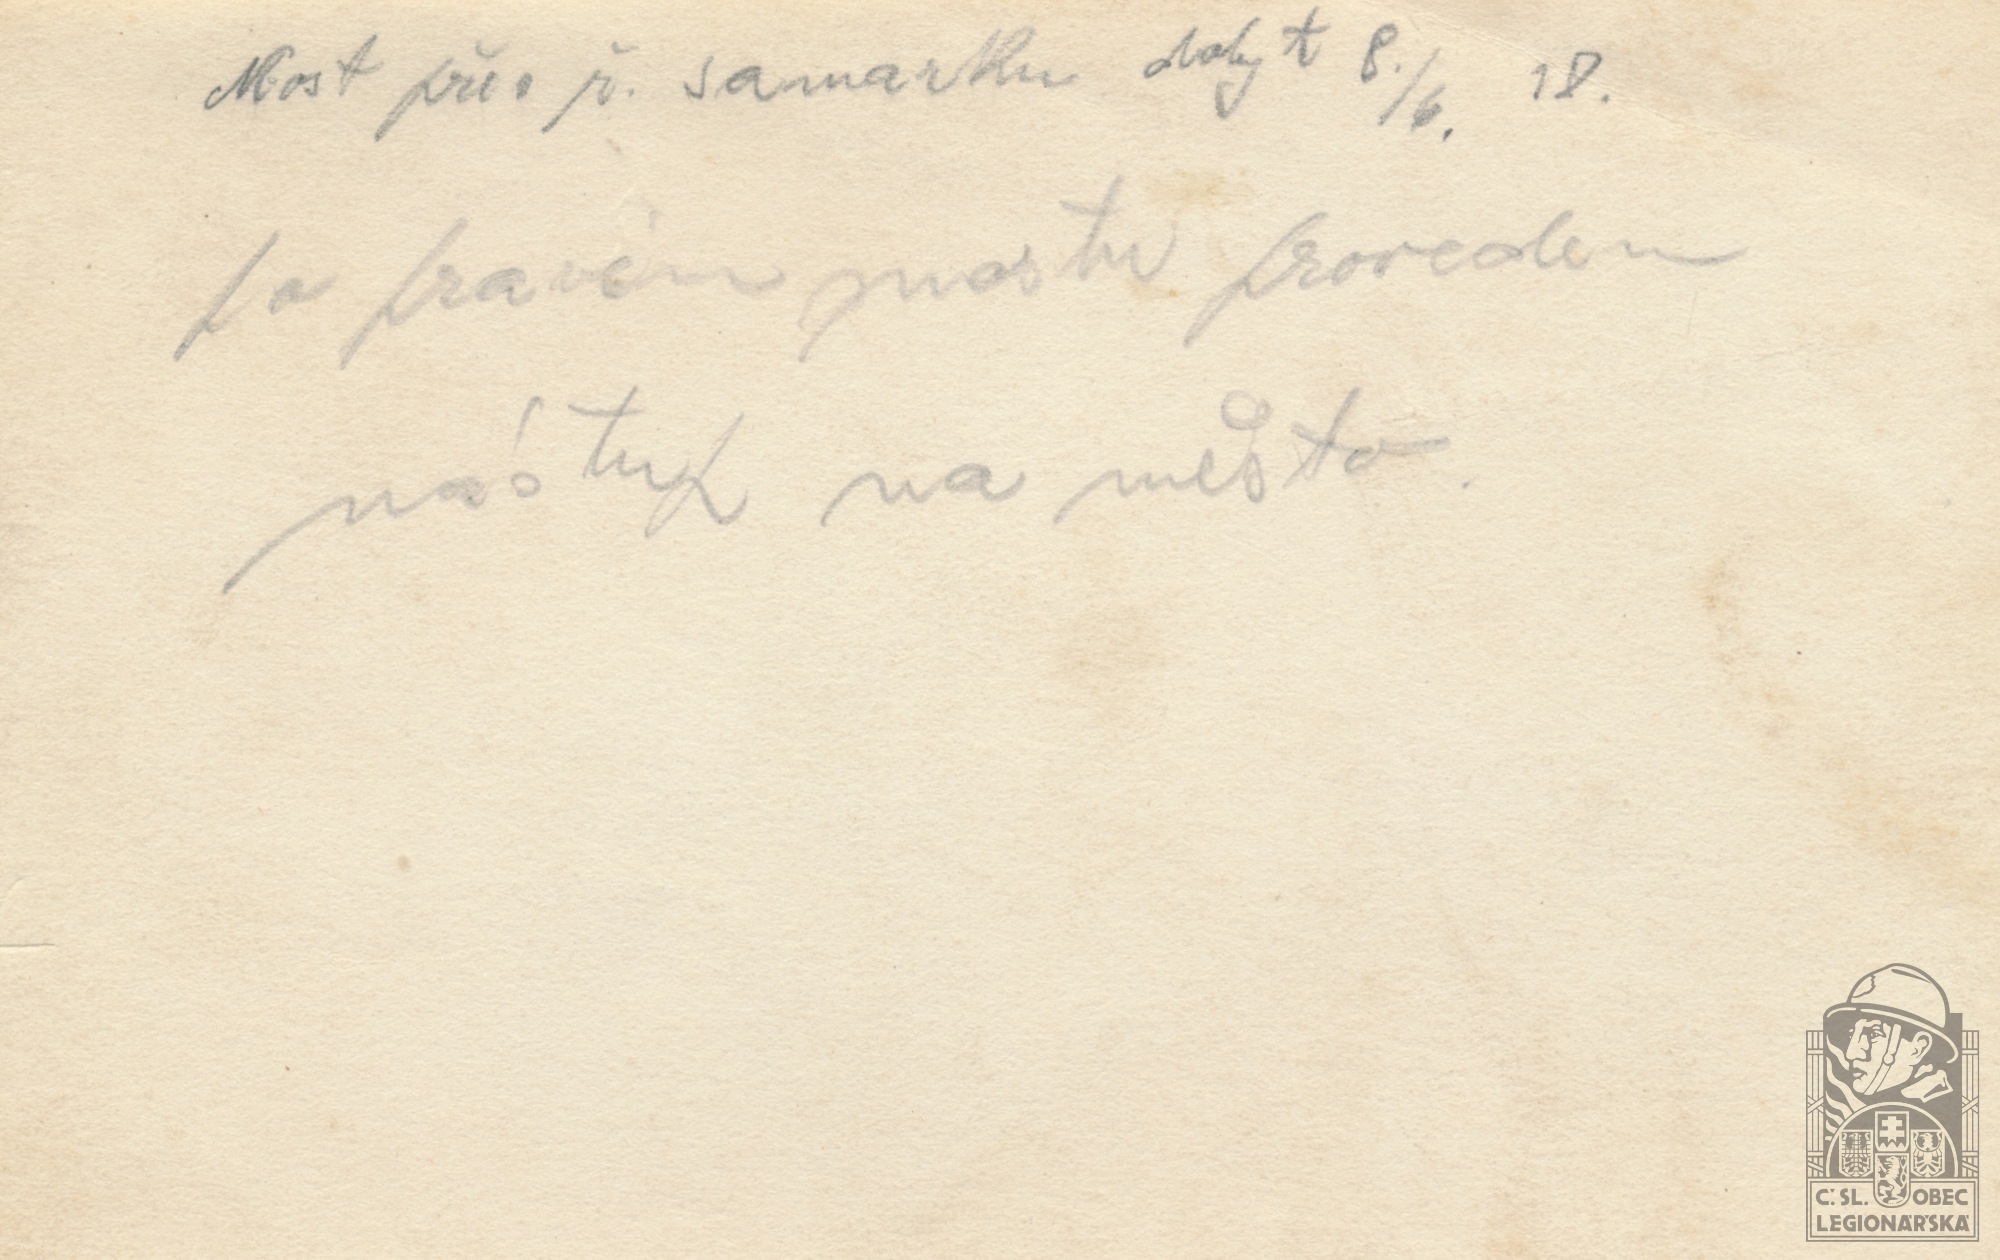 Most přes ř. samarku dobyt 8./6. 18.
po pravém mostu proveden
nástup na město.
Č.SL. OBEC
LEGIONÁŘSKÁ